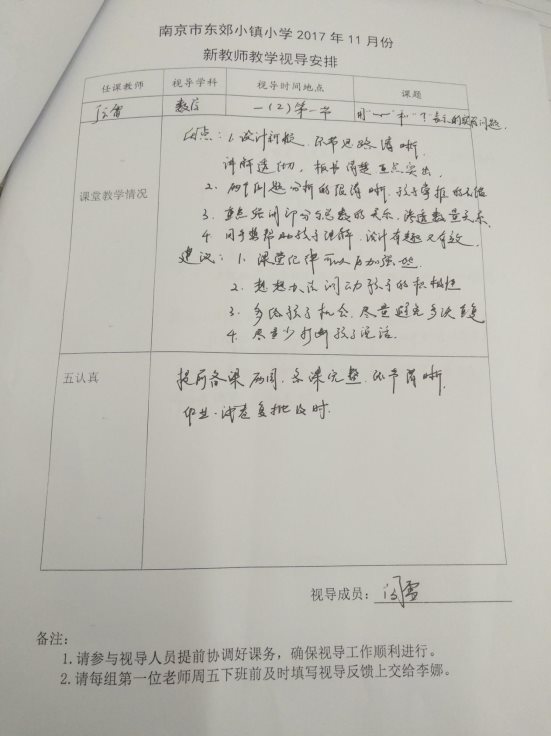 南京市东郊小镇小学 2017 年 11 月份
新教师教学视导安排
任课教师 视导学科 视导时间地点 课题
数学 一(2)第一节 用"一"和"?"表示的实际问题
课堂教学情况
优点：1. 设计新颖，环节思路清晰，
讲解透彻，板书清楚重点突出
2. 对于问题分析的很清晰，孩子掌握的不错
3. 重点强调部分与总数的关系，渗透数量关系
4. 用手势帮助孩子理解，设计有趣又有效
建议：1. 课堂纪律可以再加强些
2. 想想办法调动孩子的积极性
3. 多给孩子机会，尽量避免多次重复
4. 尽量少打断孩子说话
五认真
提前备课 备课完整，环节清晰，
作业、试卷复批及时
视导成员：闫雪
备注：
1.请参与视导人员提前协调好课务，确保视导工作顺利进行。
2.请每组第一位老师周五下班前及时填写视导反馈上交给李娜。